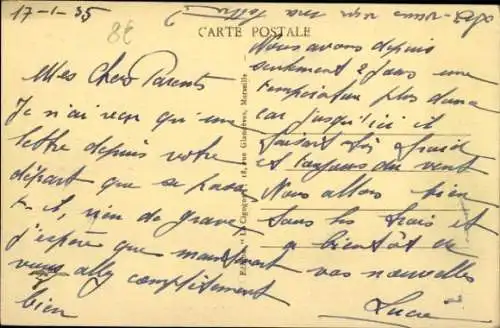 17-1-35
8€
avez-vous reçu ma lettre?
CARTE POSTALE
Mes Chers Parents
Je n'ai reçu qu'une
lettre depuis votre
départ que se passe
t-il, rien de grave
j'espère que maintenant
vous allez complètement
bien
Edit. "La Cigogne", 18, rue Glandèves, Marseille
Nous avons depuis
seulement 2 jours une
température plus douce
car jusqu'ici il
faisait très froid
et toujours du vent
Nous allons bien
Tous les trois et
à bientôt de
vos nouvelles
Lucie